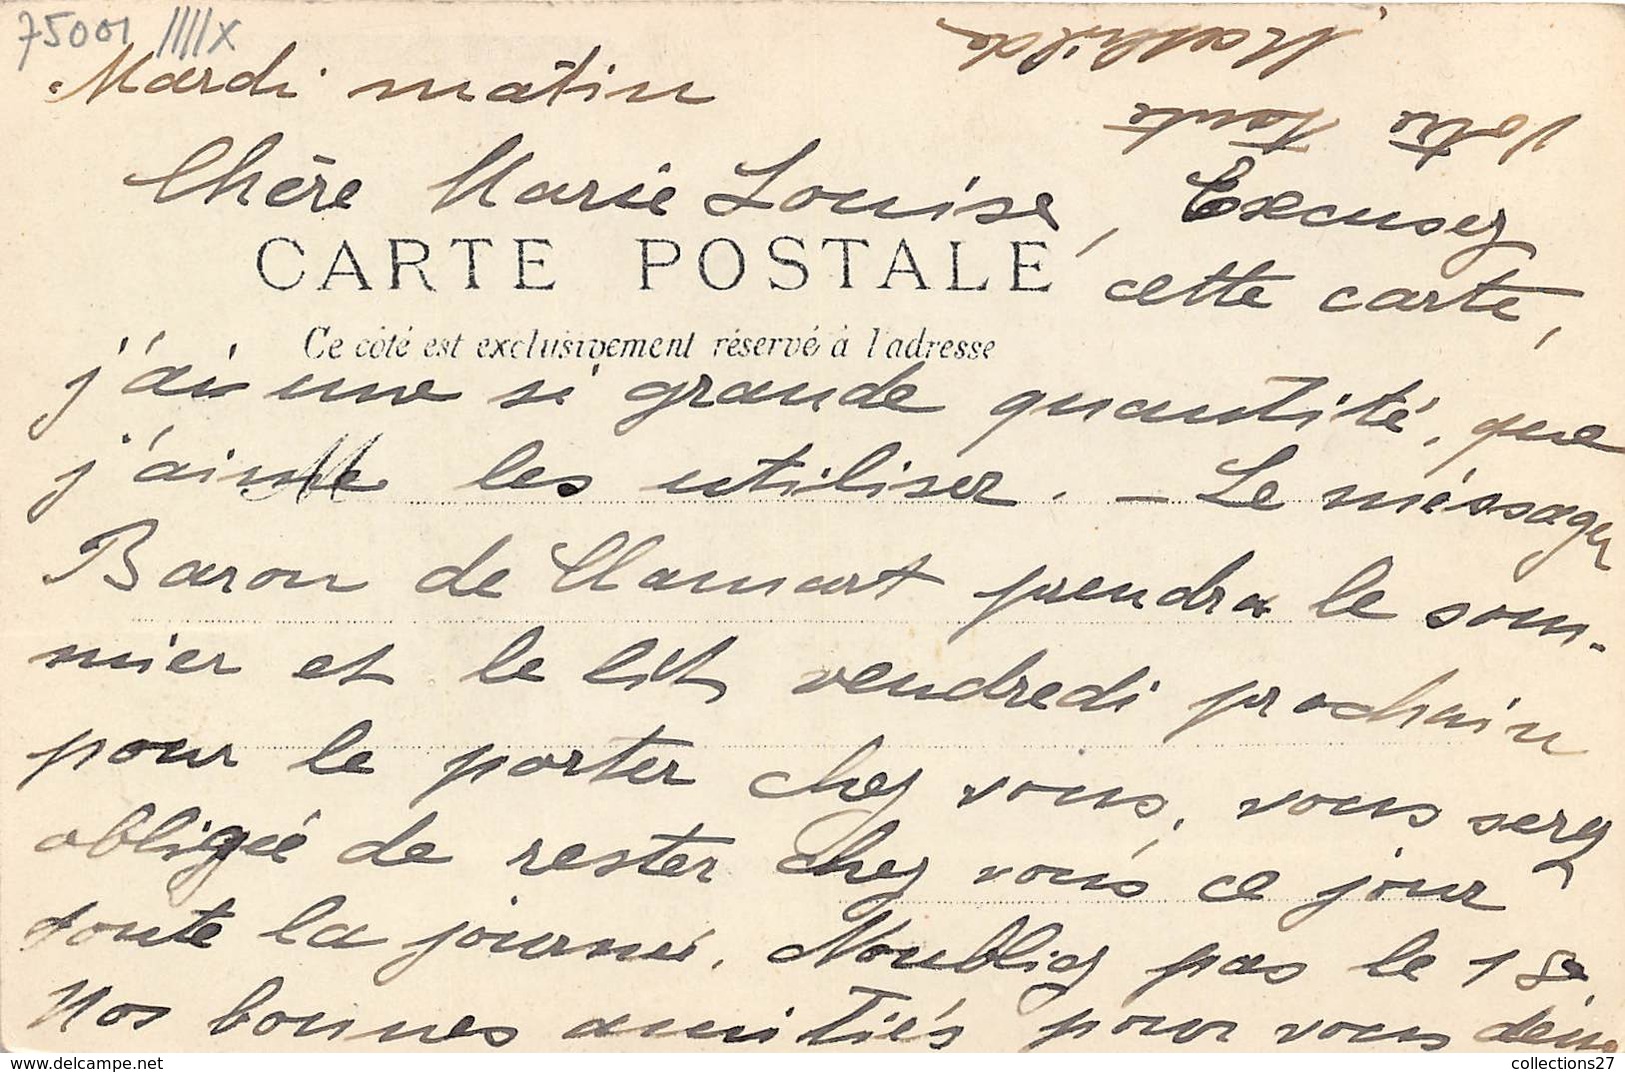 75001 ////x
Mardi matin
Chère Marie Louise, Excusez
CARTE POSTALE
cette carte,
Ce côté est exclusivement réservé à l'adresse
j'ai une si grande quantité, que
j'aime les utiliser. - Le méssager
Baron de Clamart prendra le som-
mier et le lit vendredi prochain
pour le porter chez vous, vous serez
obligée de rester chez vous ce jour
toute la journée. N'oubliez pas le 18.
Nos bonnes amitiés pour vous deux
Votre Tante
Mathilde
https://www.delcampe.net
collections27